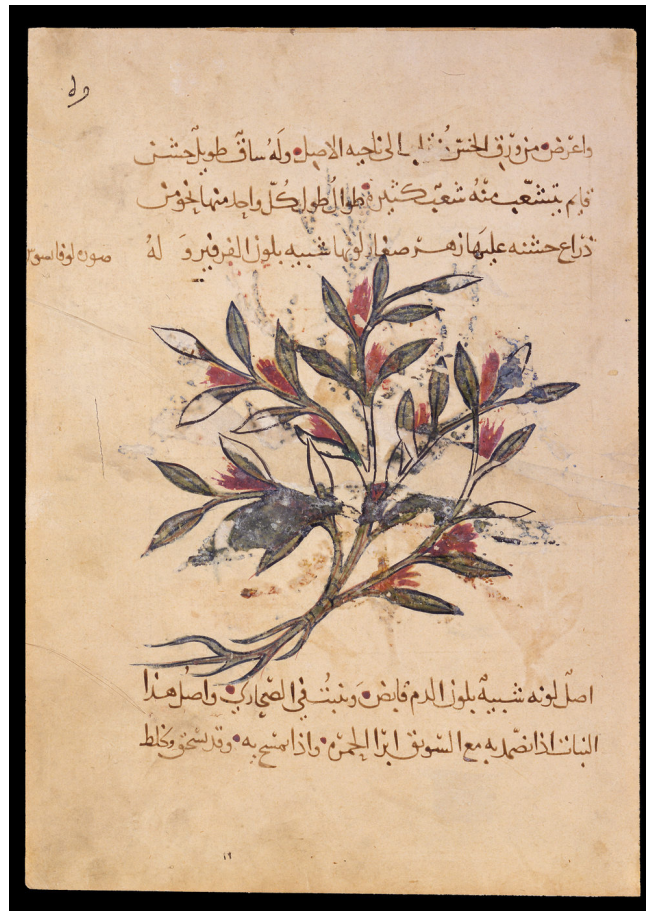 واعرض من ورق الخس الى ناحيه الاصل وله ساق طويل خشن
قايم يتشعب منه شعب كثيره طوال طول كل واحد منها نحو من
ذراع خشنه عليها زهر صغار لونها شبيه بلون الفرفير وله
صوره لوقابسوس
اصل لونه شبيه بلون الدم قابض وينبت في الصحاري واصل هذا
النبات اذا تضمد به مع السويق ابرا الحمره واذا تمسح به وقد سحق وخلط
١٦